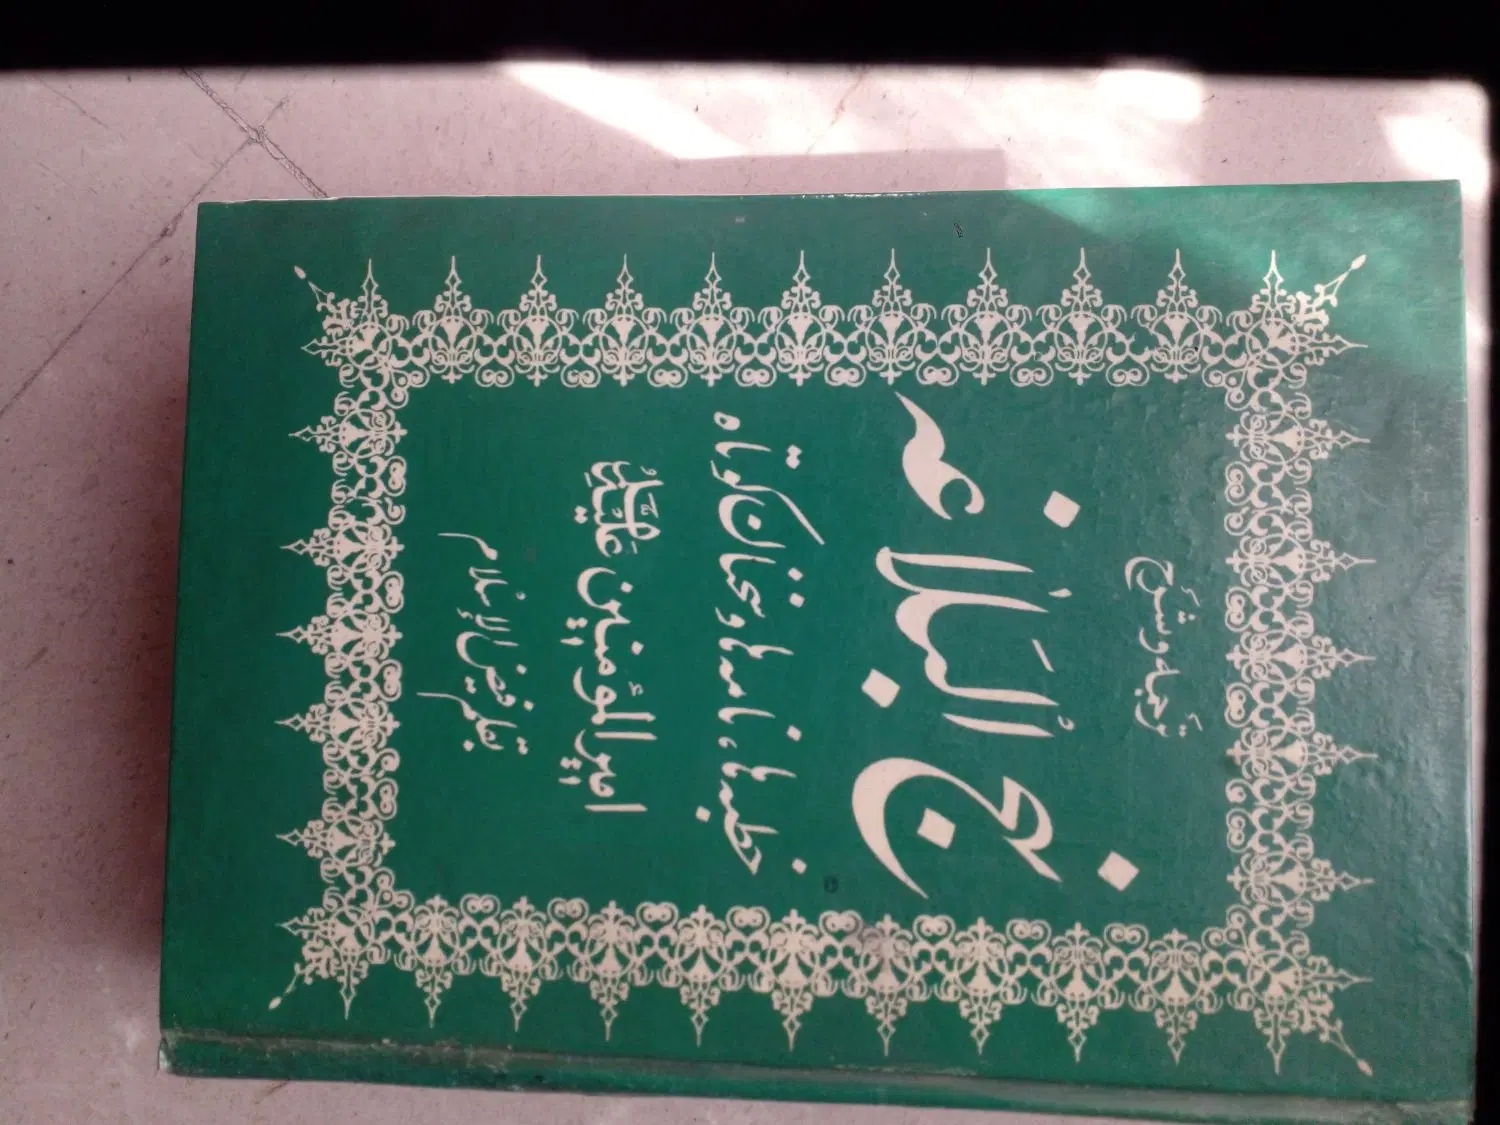 تَرجمَه و شَرح
نهج البَلاغه
خطبه‌ها، نامه‌ها و سخنان کوتاه
امیرالمؤمنین عَلَیهِ السَّلام
بقلم فیض الإسلام